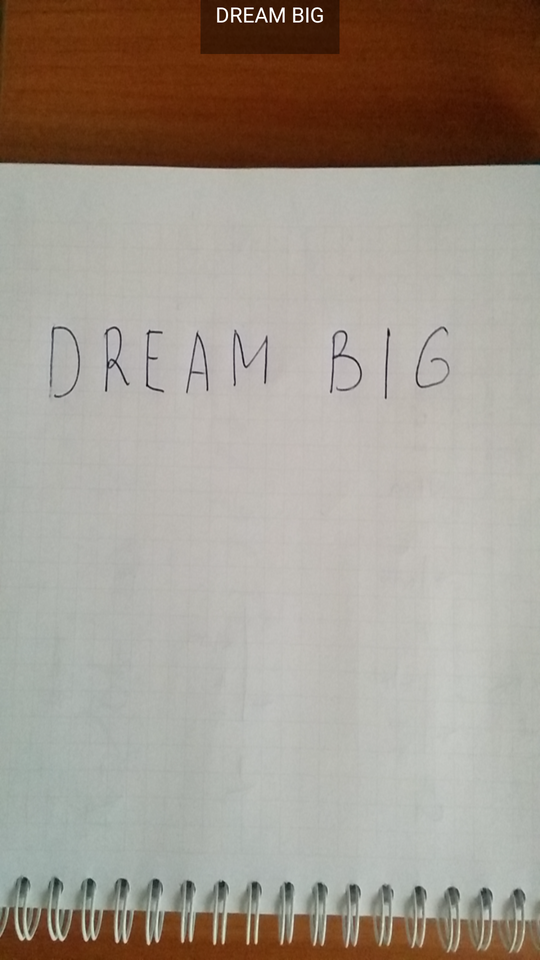 DREAM BIG
DREAM BIG